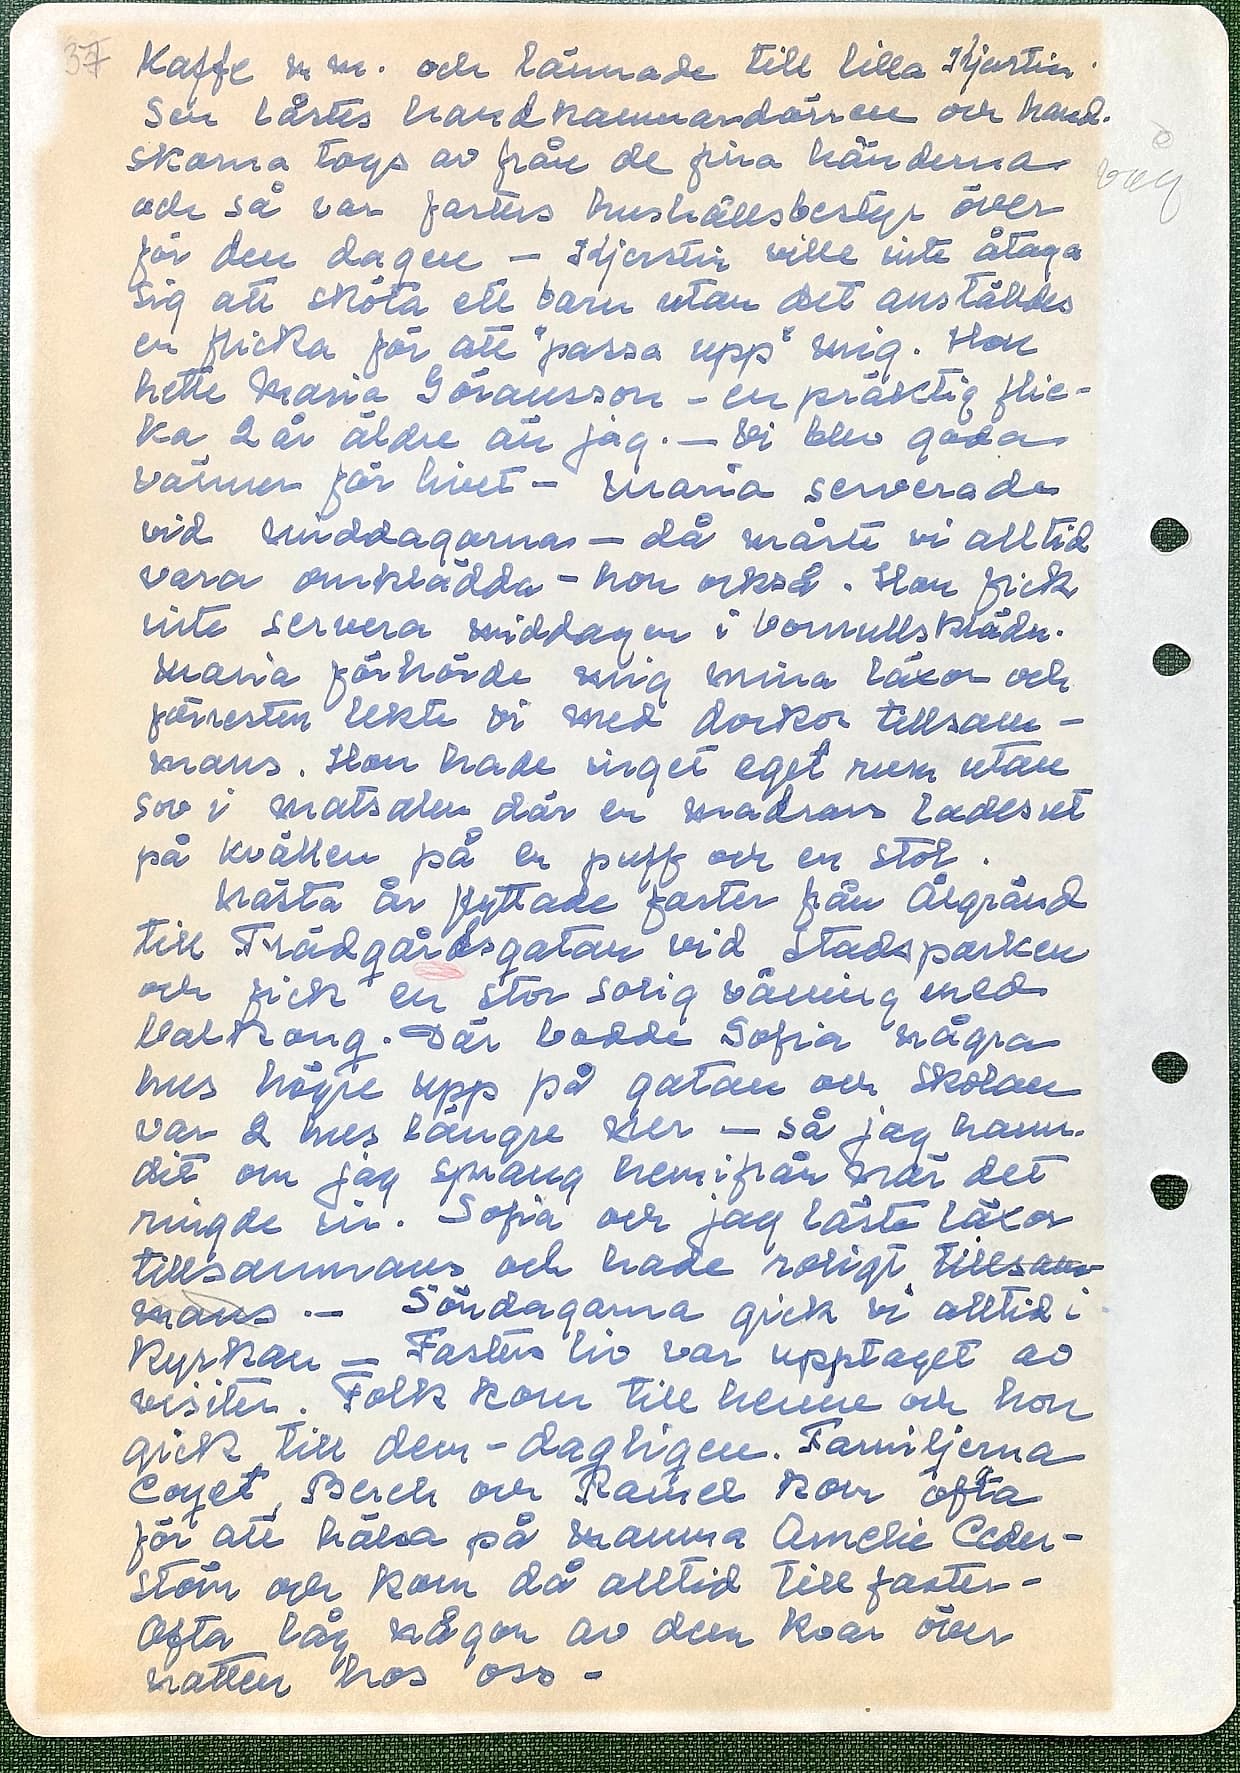 37
Kaffe m.m. och lämnade till lilla Kjerstin.
Sen låstes handkammardörren och hand-
skarna togs av från de fina händerna
och så var fasters hushållsbestyr över
för den dagen – Kjerstin ville inte åtaga
sig att sköta ett barn utan det anställdes
en flicka för att "passa upp" mig. Hon
hette Maria Göransson – en präktig flic-
ka 2 år äldre än jag. – Vi blev goda
vänner för livet – Maria serverade
vid middagarna – då måste vi alltid
vara omklädda – hon också. Hon fick
inte servera middagen i bomullsklädn.
Maria förhörde mig mina läxor och
förresten lekte vi med dockor tillsam-
mans. Hon hade inget eget rum utan
sov i matsalen där en madrass lades ut
på kvällen på en puff och en stol.
Nästa år flyttade faster från Ågränd
till Trädgårdsgatan vid Stadsparken
och fick en stor solig våning med
balkong. Där bodde Sofia några
hus högre upp på gatan och skolan
var 2 hus längre ner – så jag hann
dit om jag sprang hemifrån när det
ringde in. Sofia och jag läste läxor
tillsammans och hade roligt tillsam-
mans. – Söndagarna gick vi alltid i
Kyrkan – Fasters liv var upptaget av
visiter. Folk kom till henne och hon
gick till dem – dagligen. Familjerna
Coyet, Berch och Ramel kom ofta
för att hälsa på mamma Amelie Ceder-
ström och kom då alltid till faster –
Ofta låg någon av dem kvar över
natten hos oss –